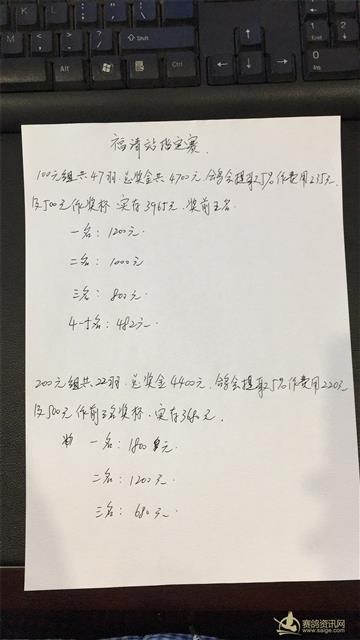 福清站指定赛.
100元组共47羽.总奖金共4700元,鸽会提取5%作费用235元.
及500元作奖杯.实存3965元.奖前五名.
一名:1200元
二名:1000元
三名:800元
4-5名:482元.
200元组共22羽.总奖金4400元.鸽会提取5%作费用220元
及500元作前三名奖杯.实存3680元.
一名:1800元.
二名:1200元.
三名:680元.
Shift
Ctrl
Alt
Alt
赛鸽资讯网
www.saige.com